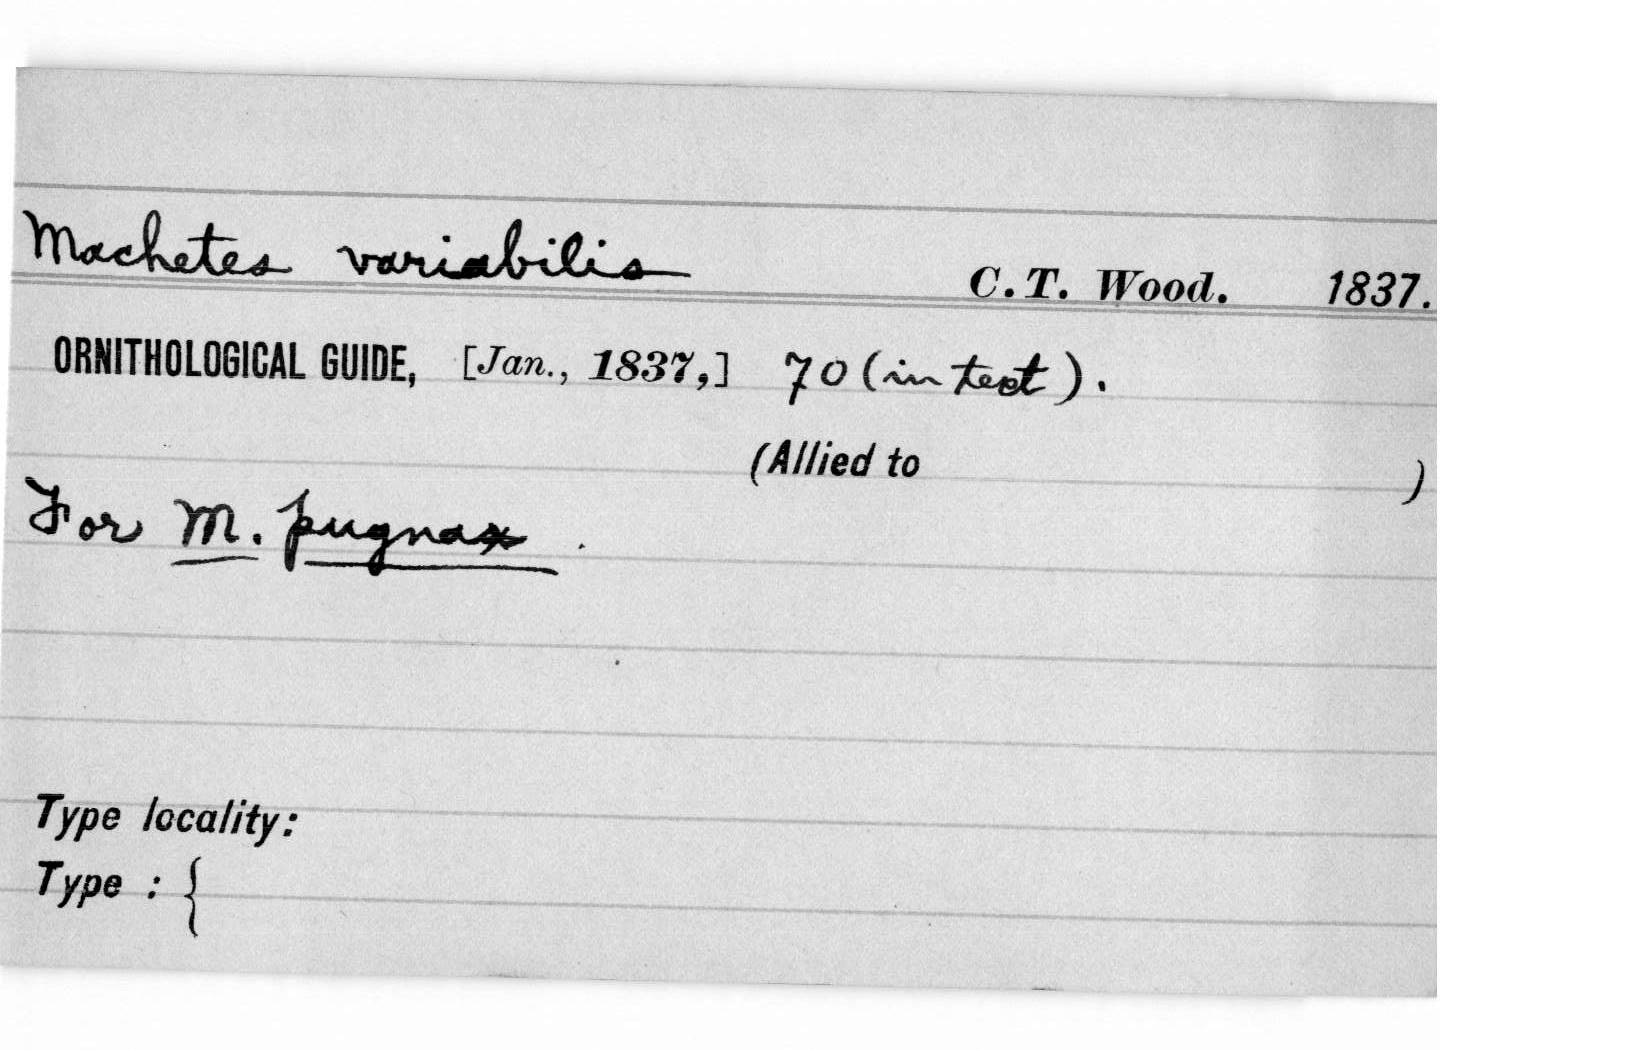 Machetes variabilis C.T. Wood. 1837.
ORNITHOLOGICAL GUIDE, [Jan., 1837,] 70 (in text).
(Allied to )
For M. pugnax.
Type locality:
Type : {